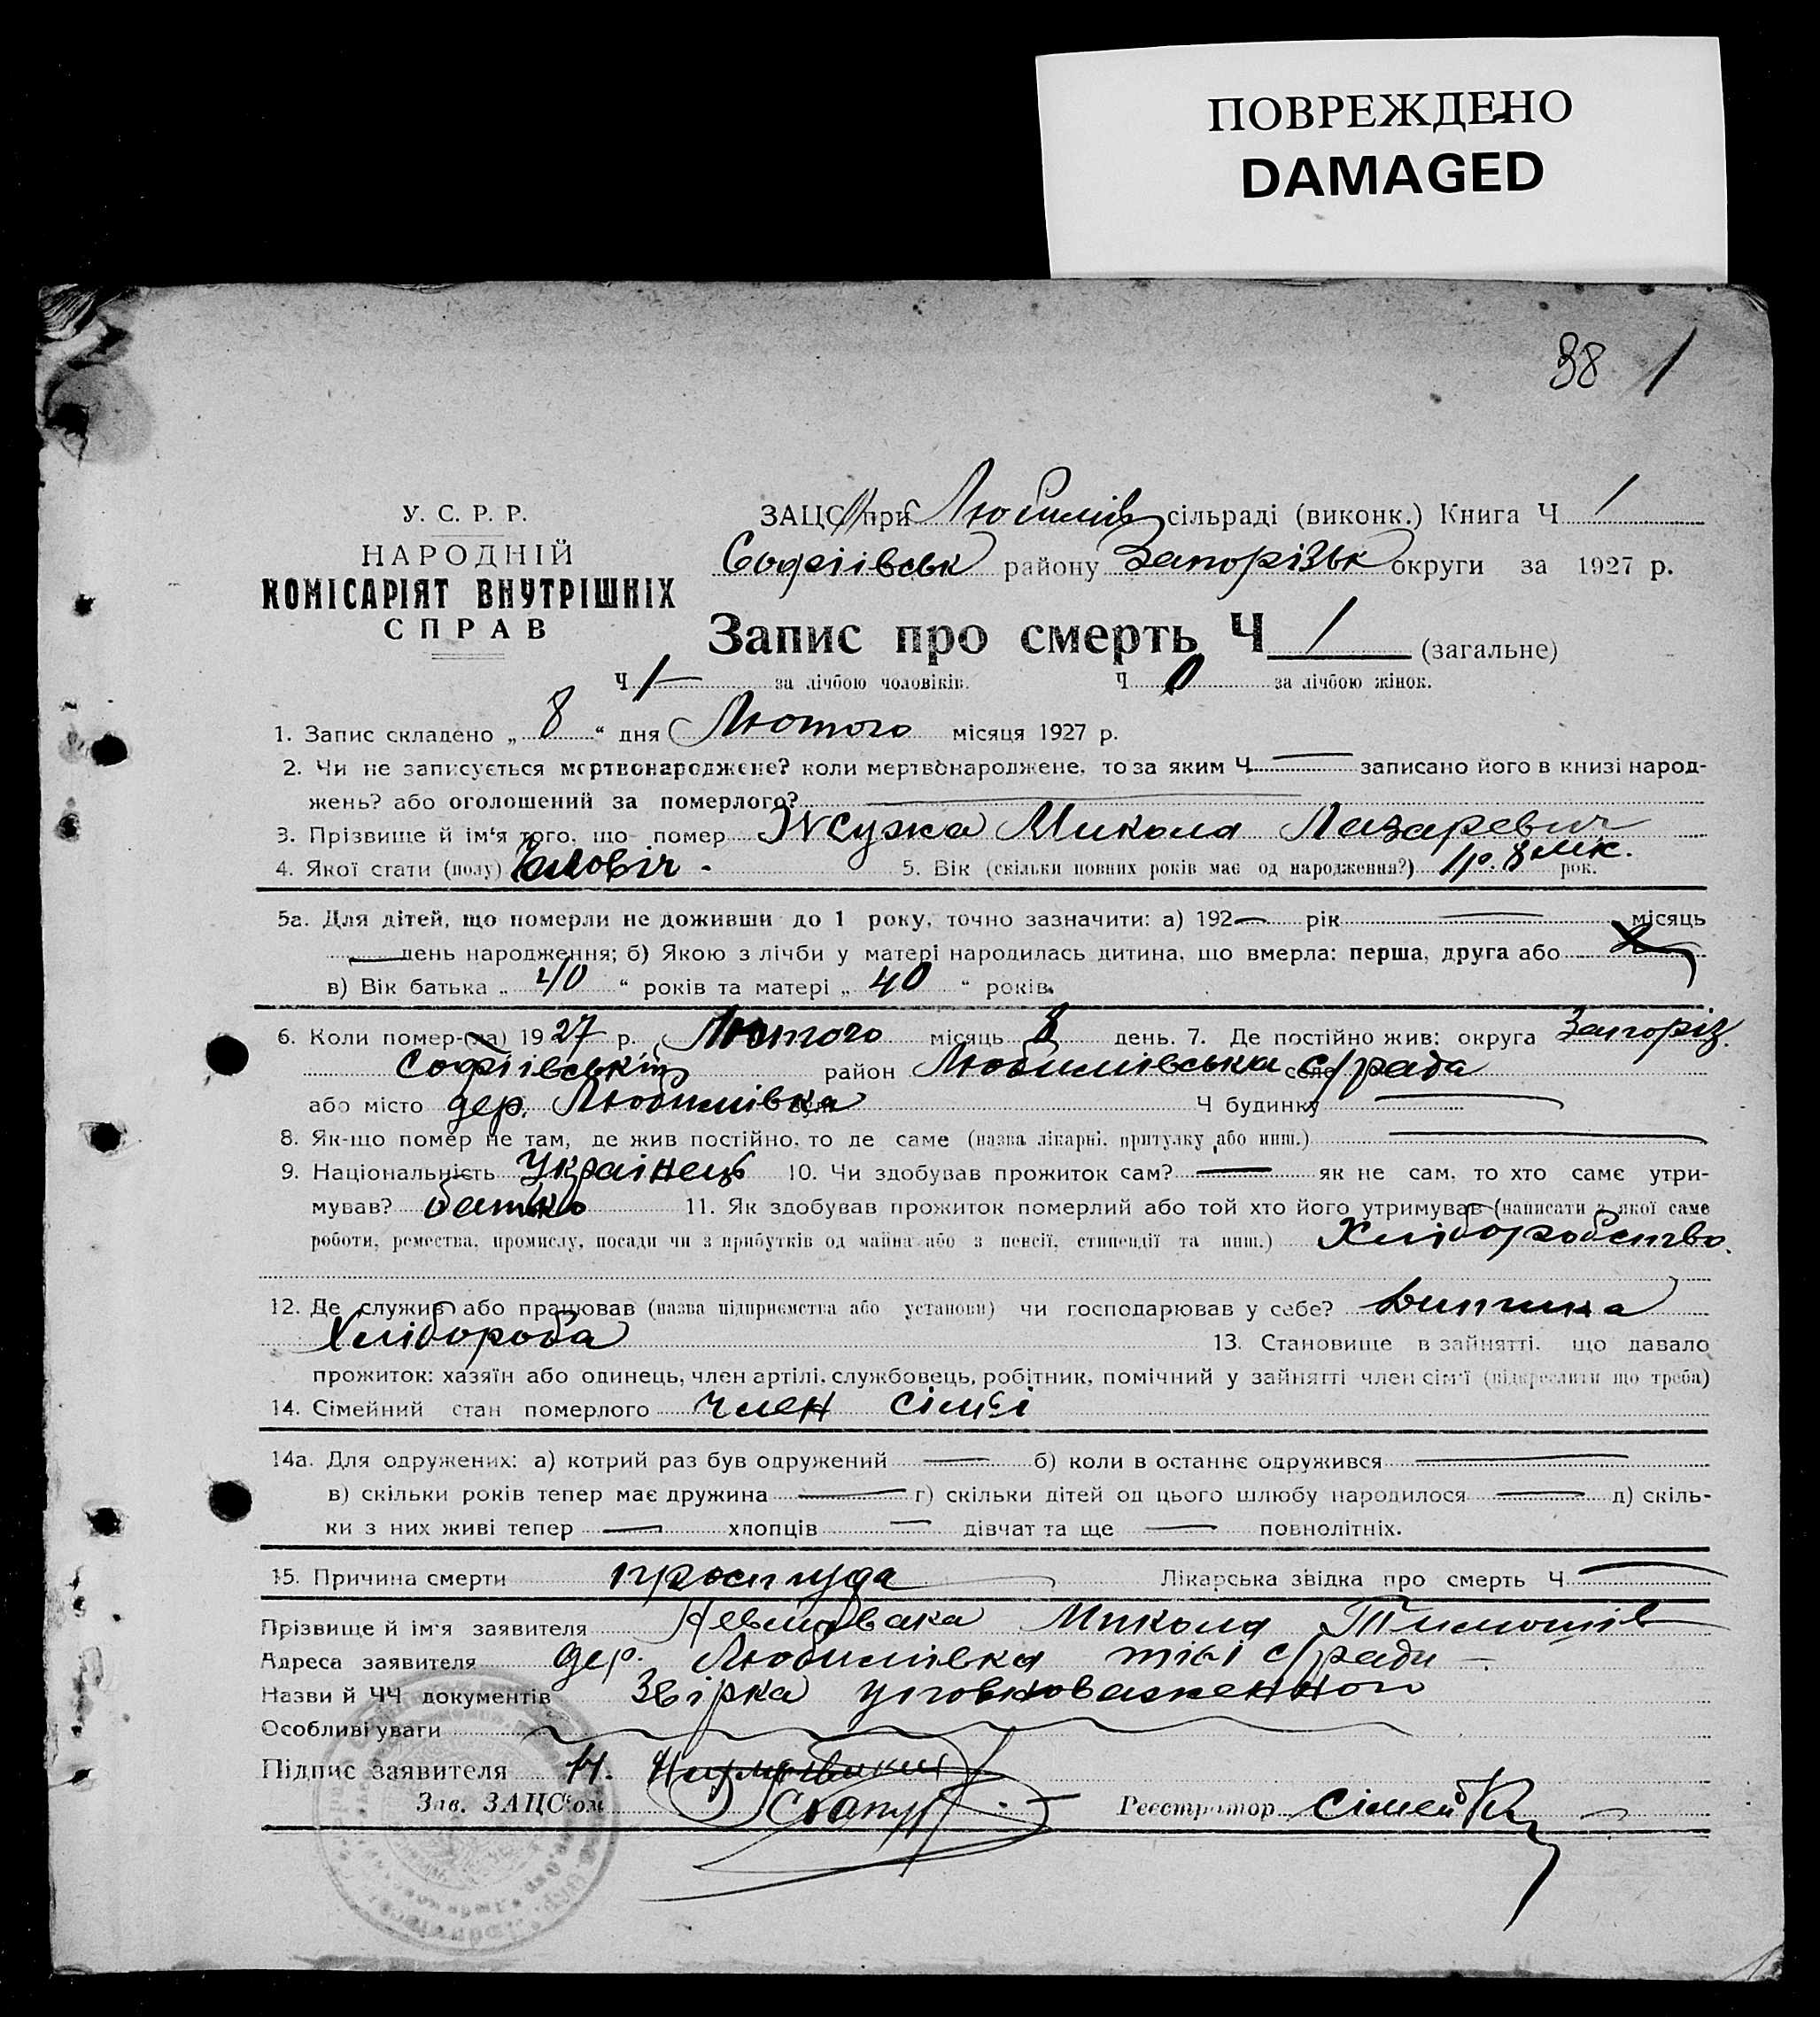 ПОВРЕЖДЕНО
DAMAGED
38 1
У. С. Р. Р.
НАРОДНІЙ
КОМІСАРІЯТ ВНУТРІШНІХ
СПРАВ
ЗАЦС при Любимів сільраді (виконк.) Книга Ч 1
Софіівськ району Запорізьк округи за 1927 р.
Запис про смерть Ч 1 (загальне)
Ч 1 за лічбою чоловіків. Ч 0 за лічбою жінок.
1. Запис складено „ 8 “ дня Лютого місяця 1927 р.
2. Чи не записується мертвонароджене? коли мертвонароджене, то за яким Ч — записано його в книзі народ-
жень? або оголошений за померлого? —
3. Прізвище й ім'я того, що помер Микола Лазаревич
4. Якої стати (полу) Чоловіч. 5. Вік (скільки повних років має од народження?) 1 р. 8 мік. рок.
5а. Для дітей, що померли не доживши до 1 року, точно зазначити: а) 192— рік — місяць
— день народження; б) Якою з лічби у матері народилась дитина, що вмерла: перша, друга або
в) Вік батька „ 40 “ років та матері „ 40 “ років.
6. Коли помер-(ла) 1927 р. Лютого місяць 8 день. 7. Де постійно жив: округа Запоріз.
Софіівський район Любимівська село с/рада
або місто дер. Любимівка вул. Ч будинку —
8. Як-що помер не там, де жив постійно, то де саме (назва лікарні, притулку або инш.) —
9. Національність Украінець 10. Чи здобував прожиток сам? — як не сам, то хто саме утри-
мував? батько 11. Як здобував прожиток померлий або той хто його утримував (написати з якої саме
роботи, ремества, промислу, посади чи з прибутків од майна або з пенсії, стипендії та инш.) Хліборобство.
12. Де служив або працював (назва підприємства або установи) чи господарював у себе?
Хлібороба 13. Становище в зайнятті, що давало
прожиток: хазяїн або одинець, член артілі, службовець, робітник, помічний у зайнятті член сім'ї (підкреслити що треба)
14. Сімейний стан померлого член сімєі
14а. Для одружених: а) котрий раз був одружений — б) коли в останнє одружився —
в) скільки років тепер має дружина — г) скільки дітей од цього шлюбу народилося — д) скіль-
ки з них живі тепер — хлопців — дівчат та ще — повнолітніх.
15. Причина смерти простуда Лікарська звідка про смерть Ч —
Прізвище й ім'я заявителя Микола Тимошів
Адреса заявителя дер. Любимівка тіеі с/ради
Назви й ЧЧ документів Звірка уповноваженного
Особливі уваги
Підпис заявителя Н.
Зав. ЗАЦС'ом
Реєстратор